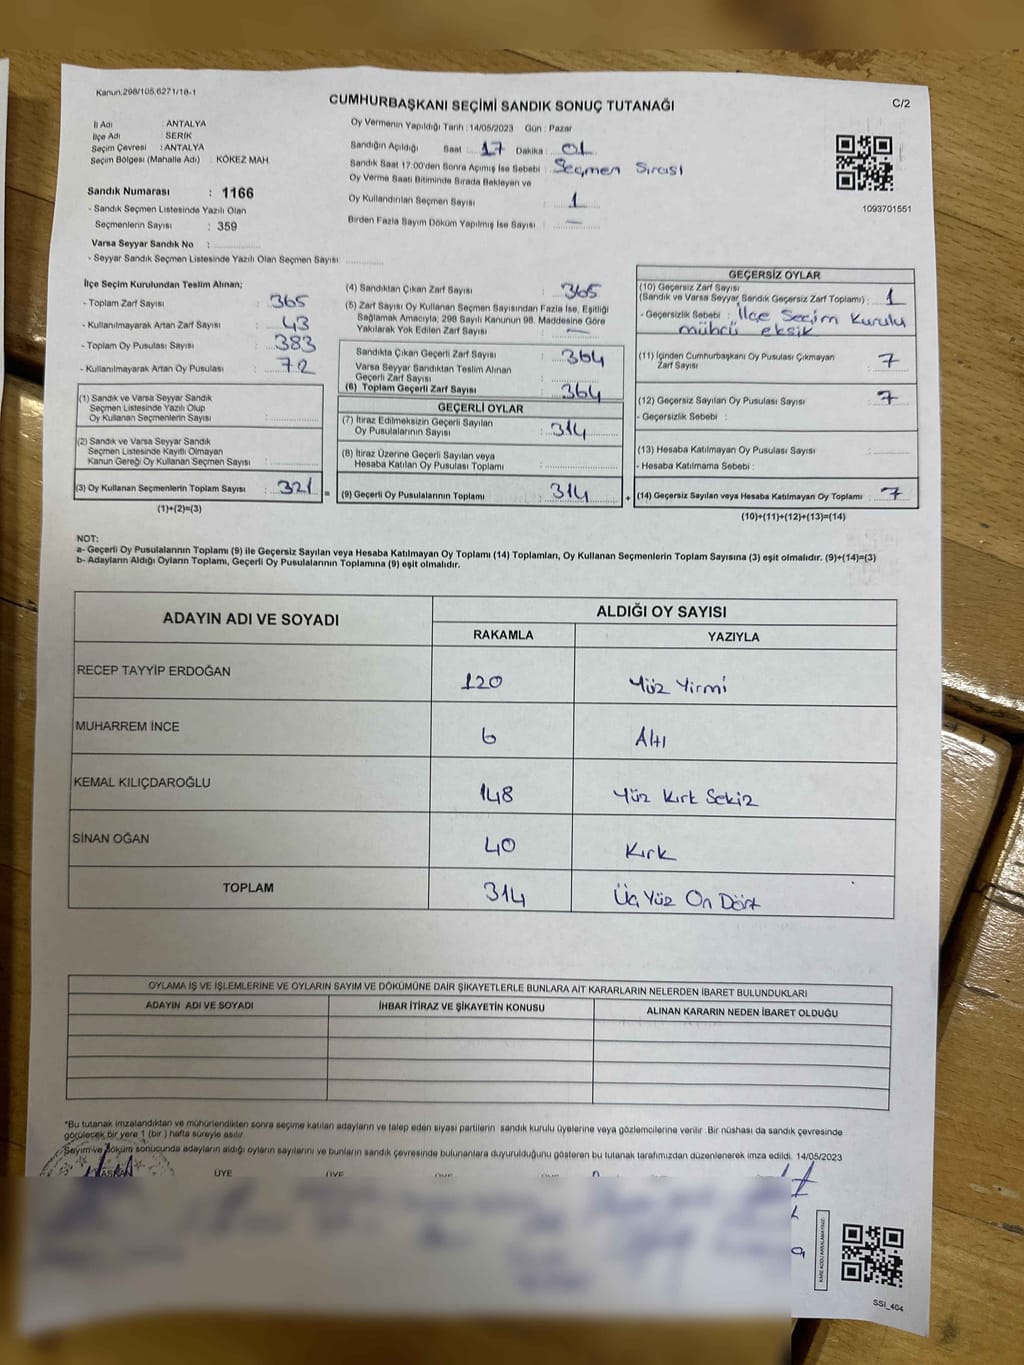 Kanun,298/105,6271/18-1
CUMHURBAŞKANI SEÇİMİ SANDIK SONUÇ TUTANAĞI
C/2
İl Adı : ANTALYA
İlçe Adı : SERİK
Seçim Çevresi : ANTALYA
Seçim Bölgesi (Mahalle Adı) : KÖKEZ MAH.
Sandık Numarası : 1166
- Sandık Seçmen Listesinde Yazılı Olan
Seçmenlerin Sayısı : 359
Varsa Seyyar Sandık No :
- Seyyar Sandık Seçmen Listesinde Yazılı Olan Seçmen Sayısı :
Oy Vermenin Yapıldığı Tarih : 14/05/2023 Gün : Pazar
Sandığın Açıldığı Saat : 17 Dakika : 01
Sandık Saat 17.00'den Sonra Açımış İse Sebebi : Seçmen Sırası
Oy Verme Saati Bitiminde Sırada Bekleyen ve
Oy Kullandırılan Seçmen Sayısı : 1
Birden Fazla Sayım Döküm Yapılmış İse Sayısı : —
1093701551
İlçe Seçim Kurulundan Teslim Alınan;
- Toplam Zarf Sayısı : 365
- Kullanılmayarak Artan Zarf Sayısı : 43
- Toplam Oy Pusulası Sayısı : 383
- Kullanılmayarak Artan Oy Pusulası : 72
(1) Sandık ve Varsa Seyyar Sandık
Seçmen Listesinde Yazılı Olup
Oy Kullanan Seçmenlerin Sayısı :
(2) Sandık ve Varsa Seyyar Sandık
Seçmen Listesinde Kayıtlı Olmayan
Kanun Gereği Oy Kullanan Seçmen Sayısı :
(3) Oy Kullanan Seçmenlerin Toplam Sayısı : 321
(1)+(2)=(3)
(4) Sandıktan Çıkan Zarf Sayısı : 365
(5) Zarf Sayısı Oy Kullanan Seçmen Sayısından Fazla İse, Eşitliği
Sağlamak Amacıyla, 298 Sayılı Kanunun 98. Maddesine Göre
Yakılarak Yok Edilen Zarf Sayısı : —
Sandıkta Çıkan Geçerli Zarf Sayısı : 364
Varsa Seyyar Sandıktan Teslim Alınan
Geçerli Zarf Sayısı :
(6) Toplam Geçerli Zarf Sayısı : 364
GEÇERLİ OYLAR
(7) İtiraz Edilmeksizin Geçerli Sayılan
Oy Pusulalarının Sayısı : 314
(8) İtiraz Üzerine Geçerli Sayılan veya
Hesaba Katılan Oy Pusulası Toplamı :
= (9) Geçerli Oy Pusulalarının Toplamı : 314 +
GEÇERSİZ OYLAR
(10) Geçersiz Zarf Sayısı
(Sandık ve Varsa Seyyar Sandık Geçersiz Zarf Toplamı) : 1
- Geçersizlik Sebebi : İlçe Seçim Kurulu
mührü eksik
(11) İçinden Cumhurbaşkanı Oy Pusulası Çıkmayan
Zarf Sayısı : 7
(12) Geçersiz Sayılan Oy Pusulası Sayısı : 7
- Geçersizlik Sebebi :
(13) Hesaba Katılmayan Oy Pusulası Sayısı :
- Hesaba Katılmama Sebebi :
(14) Geçersiz Sayılan veya Hesaba Katılmayan Oy Toplamı : 7
(10)+(11)+(12)+(13)=(14)
NOT:
a- Geçerli Oy Pusulalarının Toplamı (9) ile Geçersiz Sayılan veya Hesaba Katılmayan Oy Toplamı (14) Toplamları, Oy Kullanan Seçmenlerin Toplam Sayısına (3) eşit olmalıdır. (9)+(14)=(3)
b- Adayların Aldığı Oyların Toplamı, Geçerli Oy Pusulalarının Toplamına (9) eşit olmalıdır.
ADAYIN ADI VE SOYADI
ALDIĞI OY SAYISI
RAKAMLA YAZIYLA
RECEP TAYYİP ERDOĞAN 120 Yüz Yirmi
MUHARREM İNCE 6 Altı
KEMAL KILIÇDAROĞLU 148 Yüz Kırk Sekiz
SİNAN OĞAN 40 Kırk
TOPLAM 314 Üç Yüz On Dört
OYLAMA İŞ VE İŞLEMLERİNE VE OYLARIN SAYIM VE DÖKÜMÜNE DAİR ŞİKAYETLERLE BUNLARA AİT KARARLARIN NELERDEN İBARET BULUNDUKLARI
ADAYIN ADI VE SOYADI İHBAR İTİRAZ VE ŞİKAYETİN KONUSU ALINAN KARARIN NEDEN İBARET OLDUĞU
*Bu tutanak imzalandıktan ve mühürlendikten sonra seçime katılan adayların ve talep eden siyasi partilerin sandık kurulu üyelerine veya gözlemcilerine verilir .Bir nüshası da sandık çevresinde
görülecek bir yere 1 (bir ) hafta süreyle asılır.
Sayım ve döküm sonucunda adayların aldığı oyların sayılarını ve bunların sandık çevresinde bulunanlara duyurulduğunu gösteren bu tutanak tarafımızdan düzenlenerek imza edildi. 14/05/2023
BAŞKAN ÜYE ÜYE
SSI_404